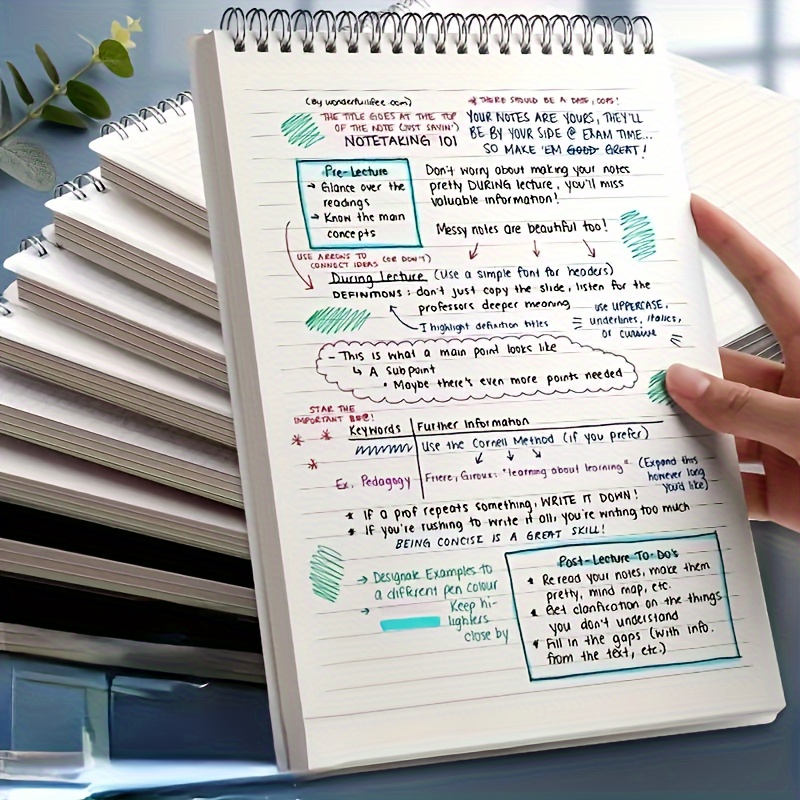 (By wonderfulifee.com)
* THERE SHOULD BE A DATE, OOPS!
THE TITLE GOES AT THE TOP
OF THE NOTE (JUST SAYIN')
NOTETAKING 101
YOUR NOTES ARE YOURS, THEY'LL
BE BY YOUR SIDE @ EXAM TIME...
SO MAKE 'EM GOOD GREAT!
Pre-Lecture
→ Glance over the
readings
→ Know the main
concepts
Don't worry about making your notes
pretty DURING lecture, you'll miss
valuable information!
Messy notes are beautiful too!
USE ARROWS TO
CONNECT IDEAS (OR DON'T)
During Lecture (Use a simple font for headers)
DEFINITIONS: don't just copy the slide, listen for the
professors deeper meaning
I highlight definition titles
use UPPERCASE,
underlines, italics,
or cursive
- This is what a main point looks like
↳ A Subpoint
• Maybe there's even more points needed
STAR THE
IMPORTANT
Keywords
Further Information
Use the Cornell Method (if you prefer)
Ex. Pedagogy
Friere, Giroux: "learning about learning"
(Expand this
however long
you'd like)
* If a prof repeats something, WRITE IT DOWN!
* If you're rushing to write it all, you're writing too much
BEING CONCISE IS A GREAT SKILL!
→ Designate Examples to
a different pen colour
→ Keep hi-
lighters
close by
Post-Lecture To-Do's
* Reread your notes, make them
pretty, mind map, etc.
* Get clarification on the things
you don't understand
* Fill in the gaps (with info.
from the text, etc.)